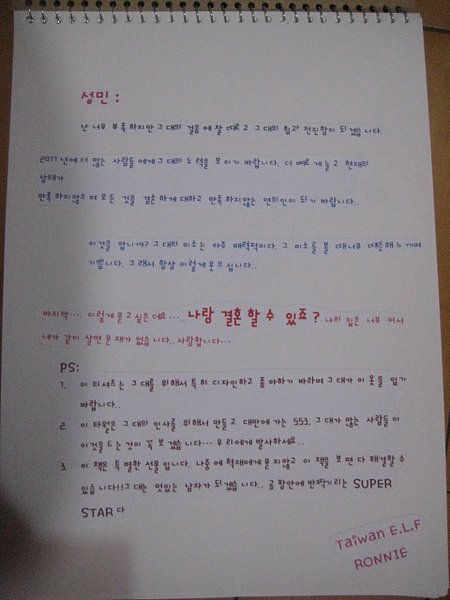 성민 :
난 너무 부족하지만 그대의 걸음에 잘 따르고 그대의 힘과 전진함이 되겠습니다.
2011년에 더 많은 사람들에게 그대의 노력을 보이기 바랍니다. 더 빠르게 늘고 현재의
상태가
만족하지않으며 모든 것을 겸손하게 대하고 만족하지않는 연외인이 되기 바랍니다..
이것을 압니까? 그대의 미소는 아주 매력적이다. 그 미소를 볼 때 너무 따뜻해 느끼며
기쁩니다. 그래서 항상 이렇게 웃으십니다..
마지막… 이렇게 묻고 싶은데요….. 나랑 결혼할 수 있죠? 나의 집은 너무 커서
네가 같이 살면 문재가 없습니다. 사랑합니다…
PS:
1. 이 티셔츠는 그대를 위해서 특히 디자인하고 좋아하기 바라며 그대가 이 옷을 입기
바랍니다..
2. 이 타월은 그대의 인사를 위해서 만들고 대만에 가는 553. 그대가 많은 사람들이
이것을 드는 것이 꼭 보겠습니다… 우리에게 발사하세요..
3. 이 책은 특별한 선물입니다. 나중에 혁재에게 묻지않고 이 책을 보면 다 해결할 수
있습니다!!그대는 멋있는 남자가 되겠습니다.. 공항안에 반짝거리는 SUPER
STAR다
Taiwan E.L.F
RONNIE